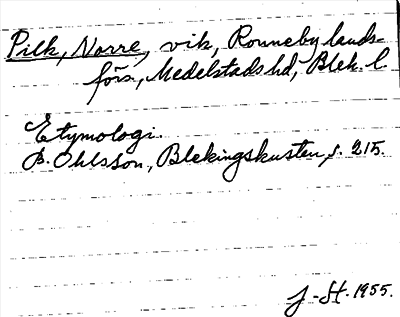 Pilk, Norre, vik, Ronneby lands-
förs., Medelstads hd, Blek. l.
Etymologi.
B. Ohlsson, Blekingskusten, s. 215.
J-St. 1955.